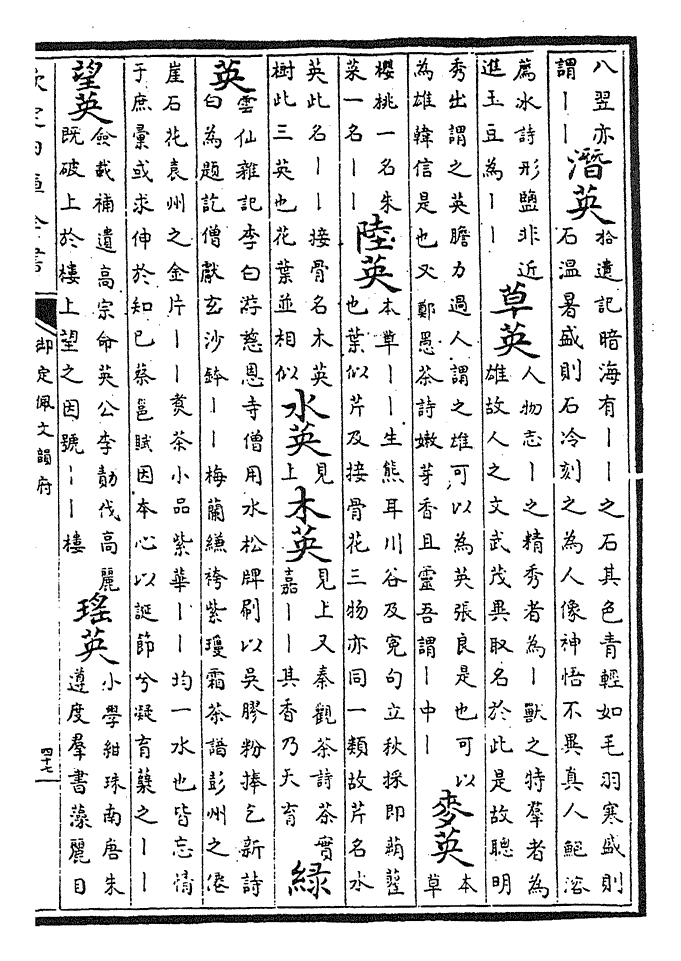 八翌亦
謂丨丨
潛英
拾遺記暗海有丨丨之石其色青輕如毛羽寒盛則
石温暑盛則石冷刻之為人像神悟不異真人鮑溶
薦冰詩形鹽非近
進玉豆為丨丨
草英
人物志丨之精秀者為丨獸之特羣者為
雄故人之文武茂異取名於此是故聰明
秀出謂之英膽力過人謂之雄可以為英張良是也可以
為雄韓信是也又鄭愚茶詩嫩芽香且靈吾謂丨中丨
麥英
本
草
櫻桃一名朱
菜一名丨丨
陸英
本草丨丨生熊耳川谷及寃句立秋採即蒴藋
也葉似芹及接骨花三物亦同一類故芹名水
英此名丨丨接骨名木英
樹此三英也花葉並相似
水英
見
上
木英
見上又秦觀茶詩茶實
嘉丨丨其香乃天育
緑
英
雲仙雜記李白游慈恩寺僧用水松牌刷以吳膠粉捧乞新詩
白為題訖僧獻玄沙鉢丨丨梅蘭縑袴紫瓊霜茶譜彭州之僊
崖石花袁州之金片丨丨煑茶小品紫華丨丨均一水也皆忘情
于庶彚或求伸於知已蔡邕賦因本心以誕節兮凝育蘖之丨丨
望英
僉載補遺高宗命英公李勣伐高麗
既破上於樓上望之因號丨丨樓
瑤英
小學紺珠南唐朱
遵度羣書藻麗目
欽定四庫全書
御定佩文韻府
四十七